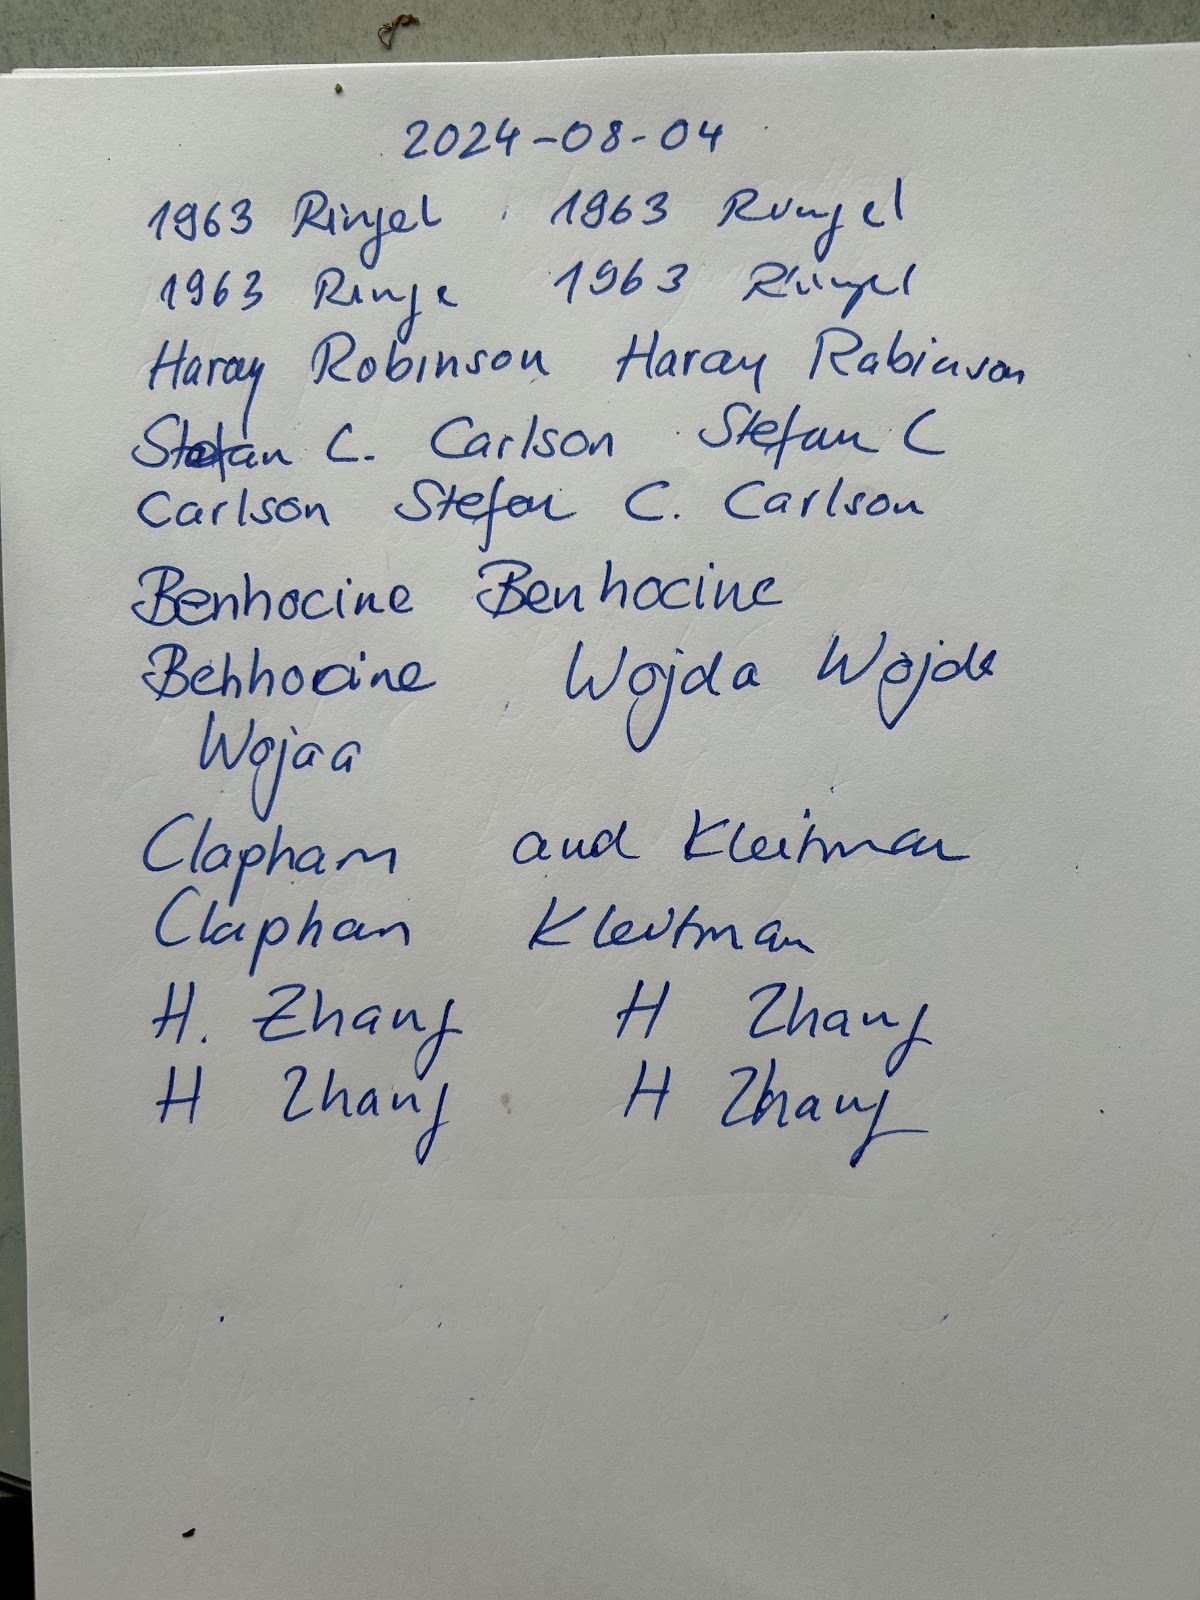 2024-08-04
1963 Ringel 1963 Rungel
1963 Ringe 1963 Ringel
Haray Robinson Haray Rabinson
Stefan C. Carlson Stefan C
Carlson Stefan C. Carlson
Benhocine Benhocine
Benhocine Wojda Wojda
Wojda
Clapham and Kleitman
Clapham Kleitman
H. Zhang H Zhang
H Zhang H Zhang